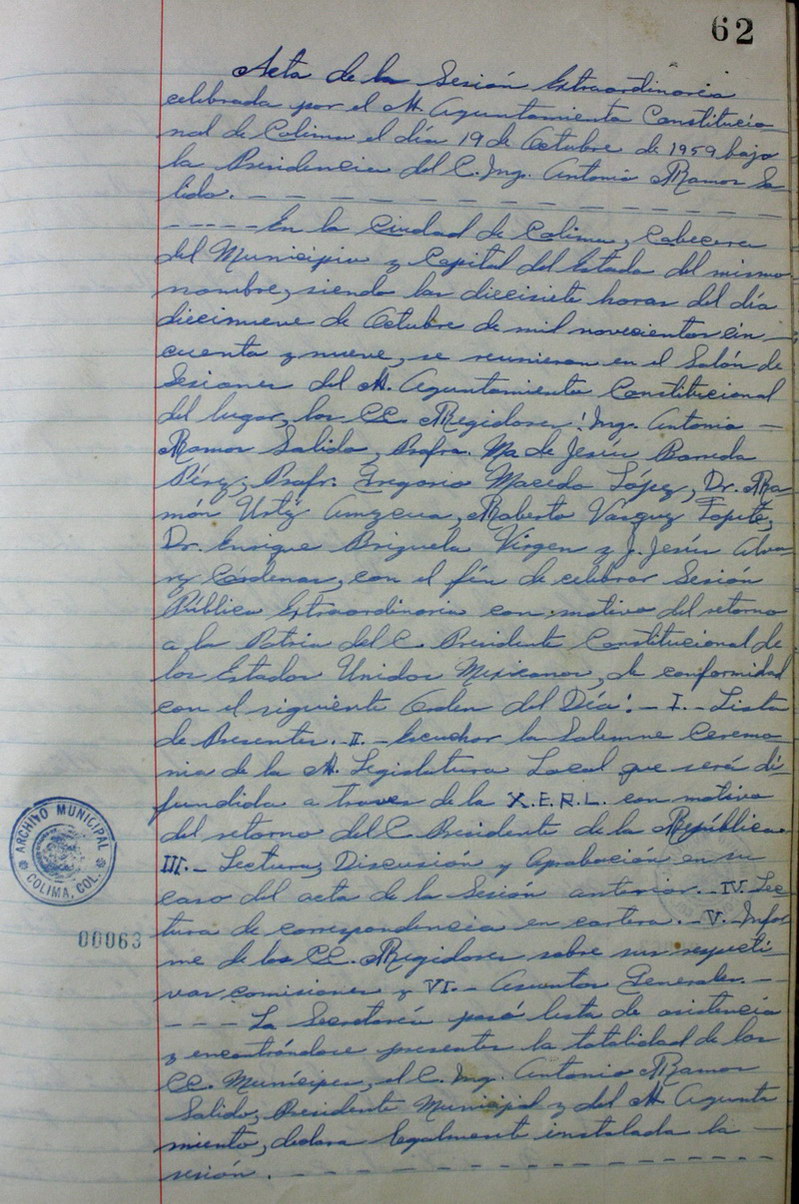 62
Acta de la Sesión Extraordinaria
celebrada por el H. Ayuntamiento Constitucio-
nal de Colima el día 19 de Octubre de 1959 bajo
la Presidencia del C. Ing. Antonio Ramos Sa-
lido. - - - - - - - - - - - - - - - -
- - - - - En la Ciudad de Colima, Cabecera
del Municipio y Capital del Estado del mismo
nombre, siendo las diecisiete horas del día
diecinueve de Octubre de mil novecientos cin-
cuenta y nueve, se reunieron en el Salón de
Sesiones del H. Ayuntamiento Constitucional
del lugar, los CC. Regidores: Ing. Antonio -
Ramos Salido, Profra. Ma de Jesús Barreda
Pérez, Profr. Gregorio Macedo López, Dr. Ra-
món Urtiz Amezcua, Roberto Vazquez Topete,
Dr. Enrique Brizuela Virgen y J. Jesús Alva-
rez Cárdenas, con el fín de celebrar Sesión
Pública Extraordinaria con motivo del retorno
a la Patria del C. Presidente Constitucional de
los Estados Unidos Mexicanos, de conformidad
con el siguiente Orden del Día: - I. - Lista
de Presentes. - II. - Escuchar la Solemne Ceremo-
nia de la H. Legislatura Local que será di-
fundida a traves de la X.E.R.L. con motivo
del retorno del C. Presidente de la República
III. - Lectura, Discusión y Aprobación en su
caso del acta de la Sesión anterior. - IV. Lec-
tura de correspondencia en cartera. - V. - Infor-
me de los CC. Regidores sobre sus respecti-
vas comisiones y VI. - Asuntos Generales. -
- - - - La Secretaría pasó lista de asistencia
y encontrándose presentes la totalidad de los
CC. Munícipes, el C. Ing. Antonio Ramos
Salido, Presidente Municipal y del H. Ayunta
miento, declara legalmente instalada la -
sesión. - - - - - - - - - - - - - - -
ARCHIVO MUNICIPAL
COLIMA, COL.
00063